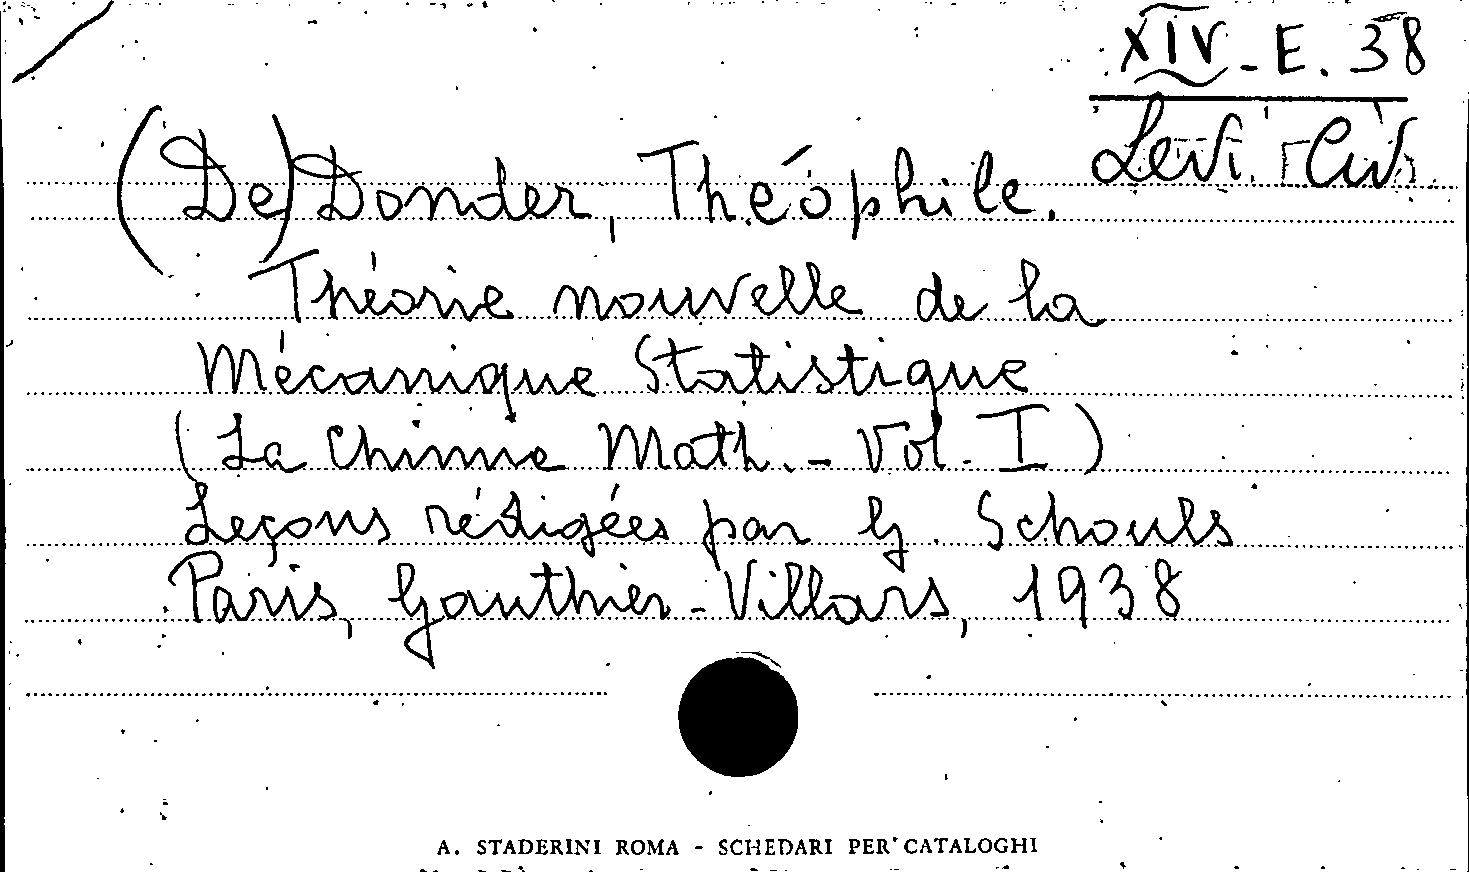 XIV - E. 38
Levi Civ.
(De) Donder, Théophile.
Théorie nouvelle de la
Mécanique Statistique
(La Chimie Math. - Vol. I)
Leçons rédigées par G. Schouls
Paris, Gauthier-Villars, 1938
A. STADERINI ROMA - SCHEDARI PER CATALOGHI